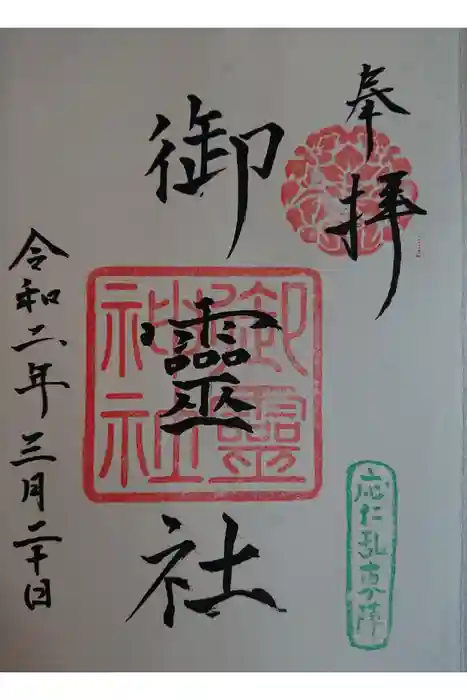 奉拝
御靈社
御靈
神社
応仁乱
令和二年三月二十日